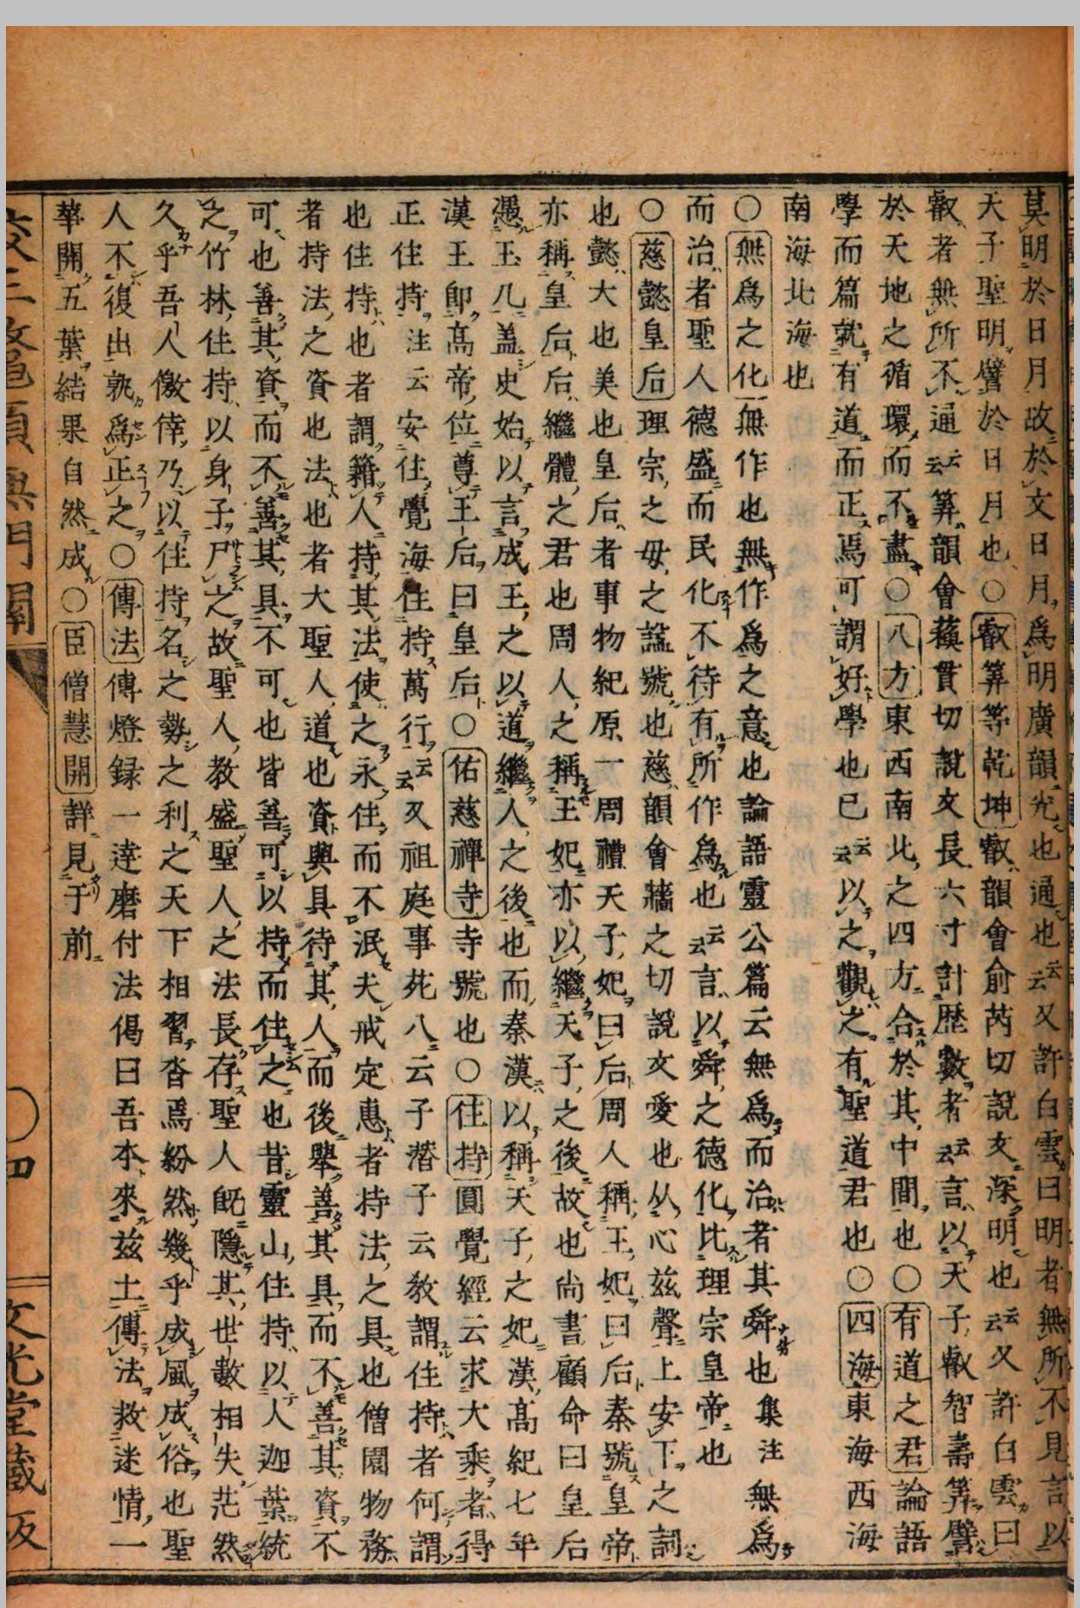 莫明於日月故於文日月爲明廣韻光也通也云云又許白雲曰明者無所不見言以
天子聖明譬於日月也〇叡筭等乾坤叡韻會俞芮切說文深明也云云又許白雲曰
叡者無所不通云云筭韻會蘓貫切說文長六寸計歴數者云云言以天子叡智壽筭譬
於天地之循環而不盡〇八方東西南北之四方合於其中間也〇有道之君論語
學而篇就有道而正焉可謂好學也已云云以之觀之有聖道君也〇四海東海西海
南海北海也
〇無爲之化無作也無作爲之意也論語靈公篇云無爲而治者其舜也集注無爲
而治者聖人德盛而民化不待有所作爲也云云言以舜之德化比理宗皇帝也
〇慈懿皇后理宗之母之諡號也慈韻會牆之切說文愛也从心兹聲上安下之詞
也懿大也美也皇后者事物紀原一周禮天子妃曰后周人稱王妃曰后秦號皇帝
亦稱皇后后繼體之君也周人之稱王妃亦以繼天子之後故也尚書顧命曰皇后
憑玉几盖史始以言成王之以道繼人之後也而秦漢以稱天子之妃漢髙紀七年
漢王即髙帝位尊王后曰皇后〇佑慈禪寺寺號也〇住持圓覺經云求大乘者得
正住持注云安住覺海住持萬行云云又祖庭事苑八云子潛子云教謂住持者何謂
也住持也者謂籍人持其法使之永住而不泯夫戒定惠者持法之具也僧園物務
者持法之資也法也者大聖人道也資與具待其人而後舉善其具而不善其資不
可也善其資而不善其具不可也皆善可以持而住之也昔靈山住持以人迦葉統
之竹林住持以身子尸之故聖人教盛聖人之法長存聖人既隱其世數相失茫然
久乎吾人儌倖乃以住持名之勢之利之天下相習沓焉紛然幾乎成風成俗也聖
人不復出孰爲正之〇傳法傳燈録一達磨付法偈曰吾本來兹土傳法救迷情一
華開五葉結果自然成〇臣僧慧開詳見于前
〇四
文光堂藏版